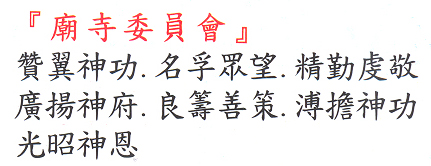 『廟寺委員會』
贊翼神功.名孚眾望.精勤虔敬
廣揚神府.良籌善策.溥擔神功
光昭神恩